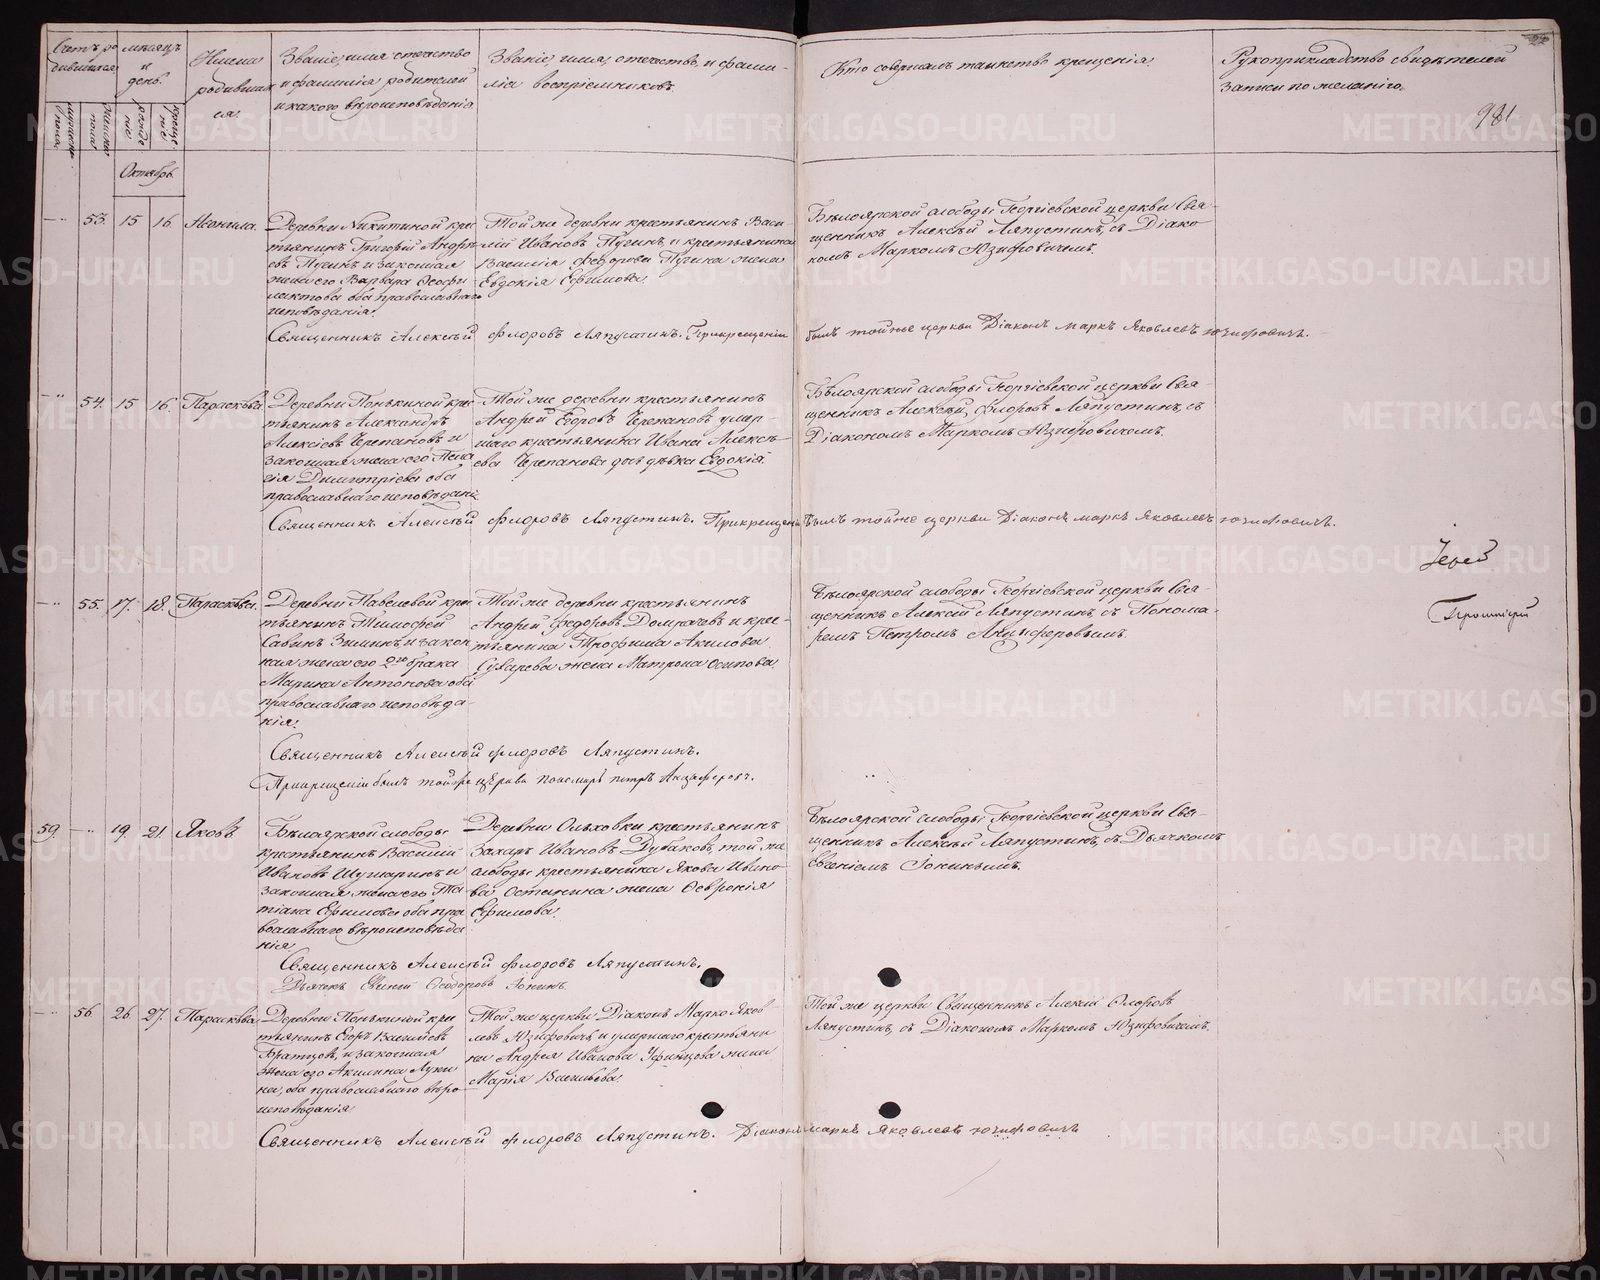 Счетъ ро
дившихся
мѣсяцъ
и
день.
мужеска
пола.
женска
пола.
рожде
нія.
креще
нія.
Имена
родивших
ся.
Званіе, имя, отечество
и фамилія родителей
и какого вѣроисповѣданія
Званіе, имя, отечество, и фами-
лія воспріемниковъ.
Кто совершалъ таинство крещенія.
Рукоприкладство свидѣтелей
записи по желанію.
981
Октябрь.
53. 15 16. Неонила.
Деревни Никитиной крес
тьянинъ Григорій Андре
евъ Пугинъ и законная
жена его Варвара Феофи
лактова оба православнаго
исповѣданія.
Той же деревни крестьянинъ Васи-
лій Ивановъ Пугинъ, и крестьянина
Василія Федорова Пугина жена
Евдокія Ефимова.
Бѣлоярской слободы Георгіевской церкви Свя-
щенникъ Алексѣй Ляпустинъ, съ Діако
номъ Маркомъ Юзифовичемъ.
Священникъ Алексѣй Флоровъ Ляпустинъ. При крещеніи былъ той же церкви Діаконъ Маркъ Яковлевъ Юзифовичь.
54. 15 16. Параскѣва.
Деревни Понькиной крес
тьянинъ Александръ
Алексѣевъ Черепановъ и
законная жена его Пела
гія Димитріева оба
православнаго исповѣданія
Той же деревни крестьянинъ
Андрей Егоровъ Черепановъ умер-
шаго крестьянина Ивана Алексѣ-
ева Черепанова дочь дѣвка Евдокія.
Бѣлоярской слободы Георгіевской церкви Свя-
щенникъ Алексѣй Флоровъ Ляпустинъ, съ
Діакономъ Маркомъ Юзифовичемъ.
Священникъ Алексѣй Флоровъ Ляпустинъ. При крещеніи былъ той же церкви Діаконъ Маркъ Яковлевъ Юзифовичь.
Іерей
55. 17. 18. Параскѣва.
Деревни Павеловой крес
тьянинъ Тимофей
Савинъ Зиминъ, и закон
ная жена его 2го брака
Марина Антонова оба
православнаго исповѣда-
нія.
Той же деревни крестьянинъ
Андрей Федоровъ Домрачевъ и крес-
тьянина Трофима Акилова
Сухарева жена Матрона Осипова.
Бѣлоярской слободы Георгіевской церкви Свя-
щенникъ Алексѣй Ляпустинъ съ Понома-
ремъ Петромъ Анциферовымъ.
Священникъ Алексѣй Флоровъ Ляпустинъ.
При крещеніи былъ той же церкви пономарь Петръ Анциферовъ.
59. 19. 21. Яковъ
Бѣлоярской слободы
крестьянинъ Василій
Ивановъ Шушаринъ и
законная жена его Та
тіана Ефимова оба пра
вославнаго вѣроисповѣда
нія.
Деревни Ольховки крестьянинъ
Захаръ Ивановъ Дубаковъ, той же
слободы крестьянина Якова Ивано-
ва Останина жена Февронія
Ефимова.
Бѣлоярской слободы Георгіевской церкви Свя-
щенникъ Алексѣй Ляпустинъ, съ Дьячкомъ
Евгеніемъ Іонинымъ.
Священникъ Алексѣй Флоровъ Ляпустинъ.
Дьячекъ Евгеній Феодоровъ Іонинъ.
56. 26 27. Параскѣва
Деревни Понькиной крес
тьянинъ Егоръ Васильевъ
Братцовъ, и законная
жена его Акилина Луки
на, оба православнаго вѣро-
исповѣданія
Той же церкви Діаконъ Марко Яков
левъ Юзифовичь, и умершаго крестьяни
на Андрея Иванова Уфинцова жена
Марія Васильева.
Той же церкви Священникъ Алексѣй Флоровъ
Ляпустинъ, съ Діакономъ Маркомъ Юзифовичемъ.
Священникъ Алексѣй Флоровъ Ляпустинъ. Діаконъ Маркъ Яковлевъ Юзифовичь